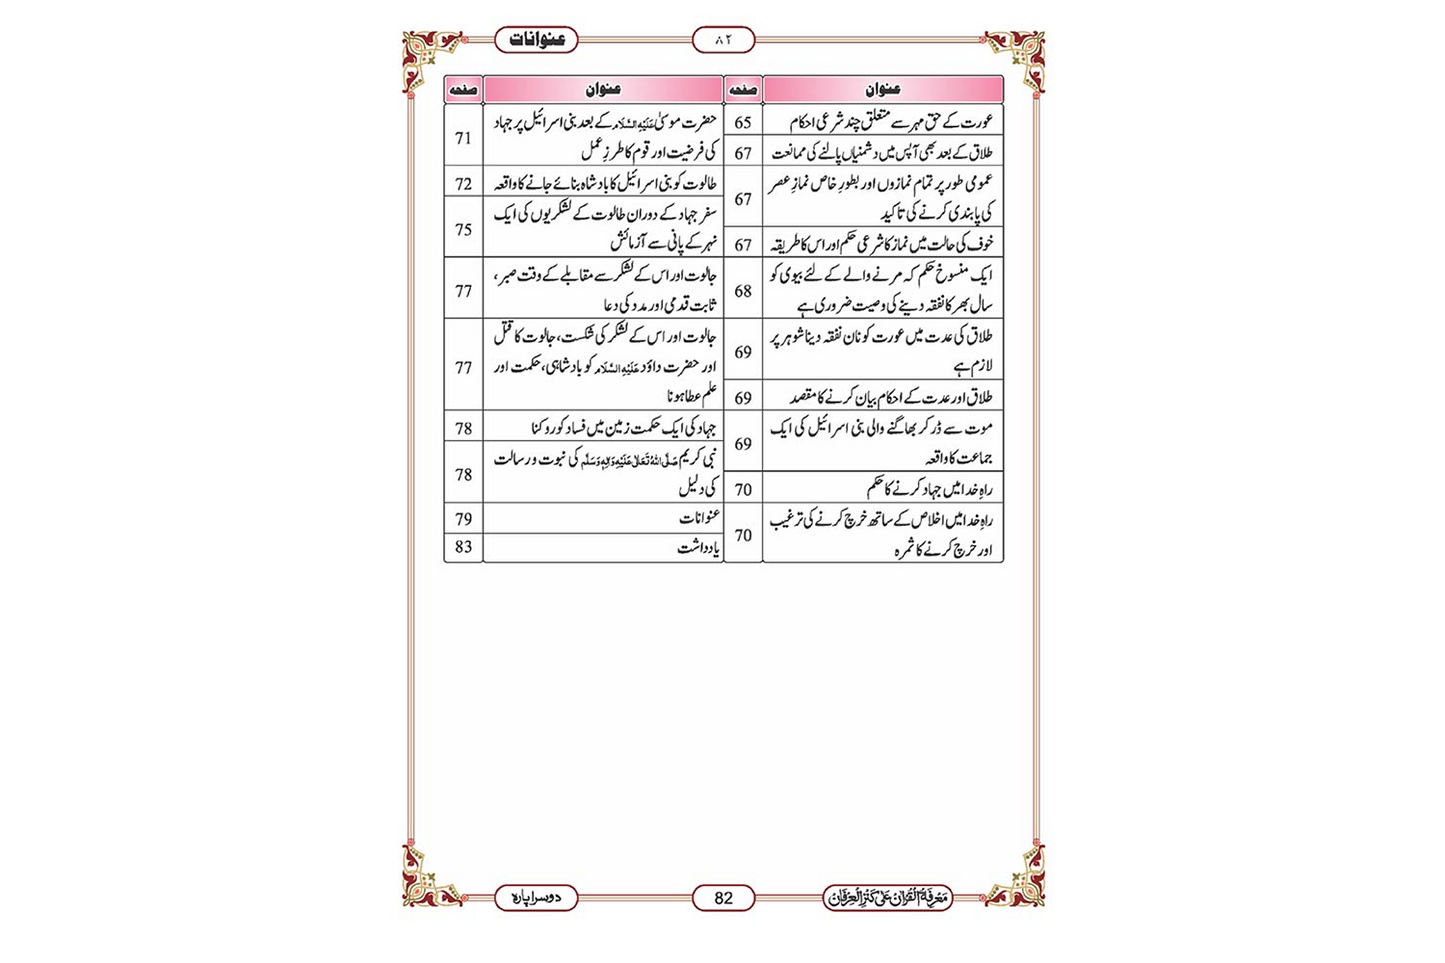 عنوانات
۸۲
عنوان
صفحہ
عورت کے حق مہر سے متعلق چند شرعی احکام
65
طلاق کے بعد بھی آپس میں دشمنیاں پالنے کی ممانعت
67
عمومی طور پر تمام نمازوں اور بطورِ خاص نمازِ عصر
کی پابندی کرنے کی تاکید
67
خوف کی حالت میں نماز کا شرعی حکم اور اس کا طریقہ
67
ایک منسوخ حکم کہ مرنے والے کے لئے بیوی کو
سال بھر کا نفقہ دینے کی وصیت ضروری ہے
68
طلاق کی عدت میں عورت کو نان نفقہ دینا شوہر پر
لازم ہے
69
طلاق اور عدت کے احکام بیان کرنے کا مقصد
69
موت سے ڈر کر بھاگنے والی بنی اسرائیل کی ایک
جماعت کا واقعہ
69
راہِ خدا میں جہاد کرنے کا حکم
70
راہِ خدا میں اخلاص کے ساتھ خرچ کرنے کی ترغیب
اور خرچ کرنے کا ثمرہ
70
عنوان
صفحہ
حضرت موسیٰ عَلَيْهِ السَّلَام کے بعد بنی اسرائیل پر جہاد
کی فرضیت اور قوم کا طرزِ عمل
71
طالوت کو بنی اسرائیل کا بادشاہ بنائے جانے کا واقعہ
72
سفر جہاد کے دوران طالوت کے لشکریوں کی ایک
نہر کے پانی سے آزمائش
75
جالوت اور اس کے لشکر سے مقابلے کے وقت صبر،
ثابت قدمی اور مدد کی دعا
77
جالوت اور اس کے لشکر کی شکست، جالوت کا قتل
اور حضرت داؤد عَلَيْهِ السَّلَام کو بادشاہی، حکمت اور
علم عطا ہونا
77
جہاد کی ایک حکمت زمین میں فساد کو روکنا
78
نبی کریم صَلَّى اللهُ تَعَالٰى عَلَيْهِ وَاٰلِهٖ وَسَلَّم کی نبوت و رسالت
کی دلیل
78
عنوانات
79
یادداشت
83
مَعْرِفَةُ الْقُرْاٰن عَلٰی كَنْزِ الْعِرْفَان
82
دوسرا پارہ